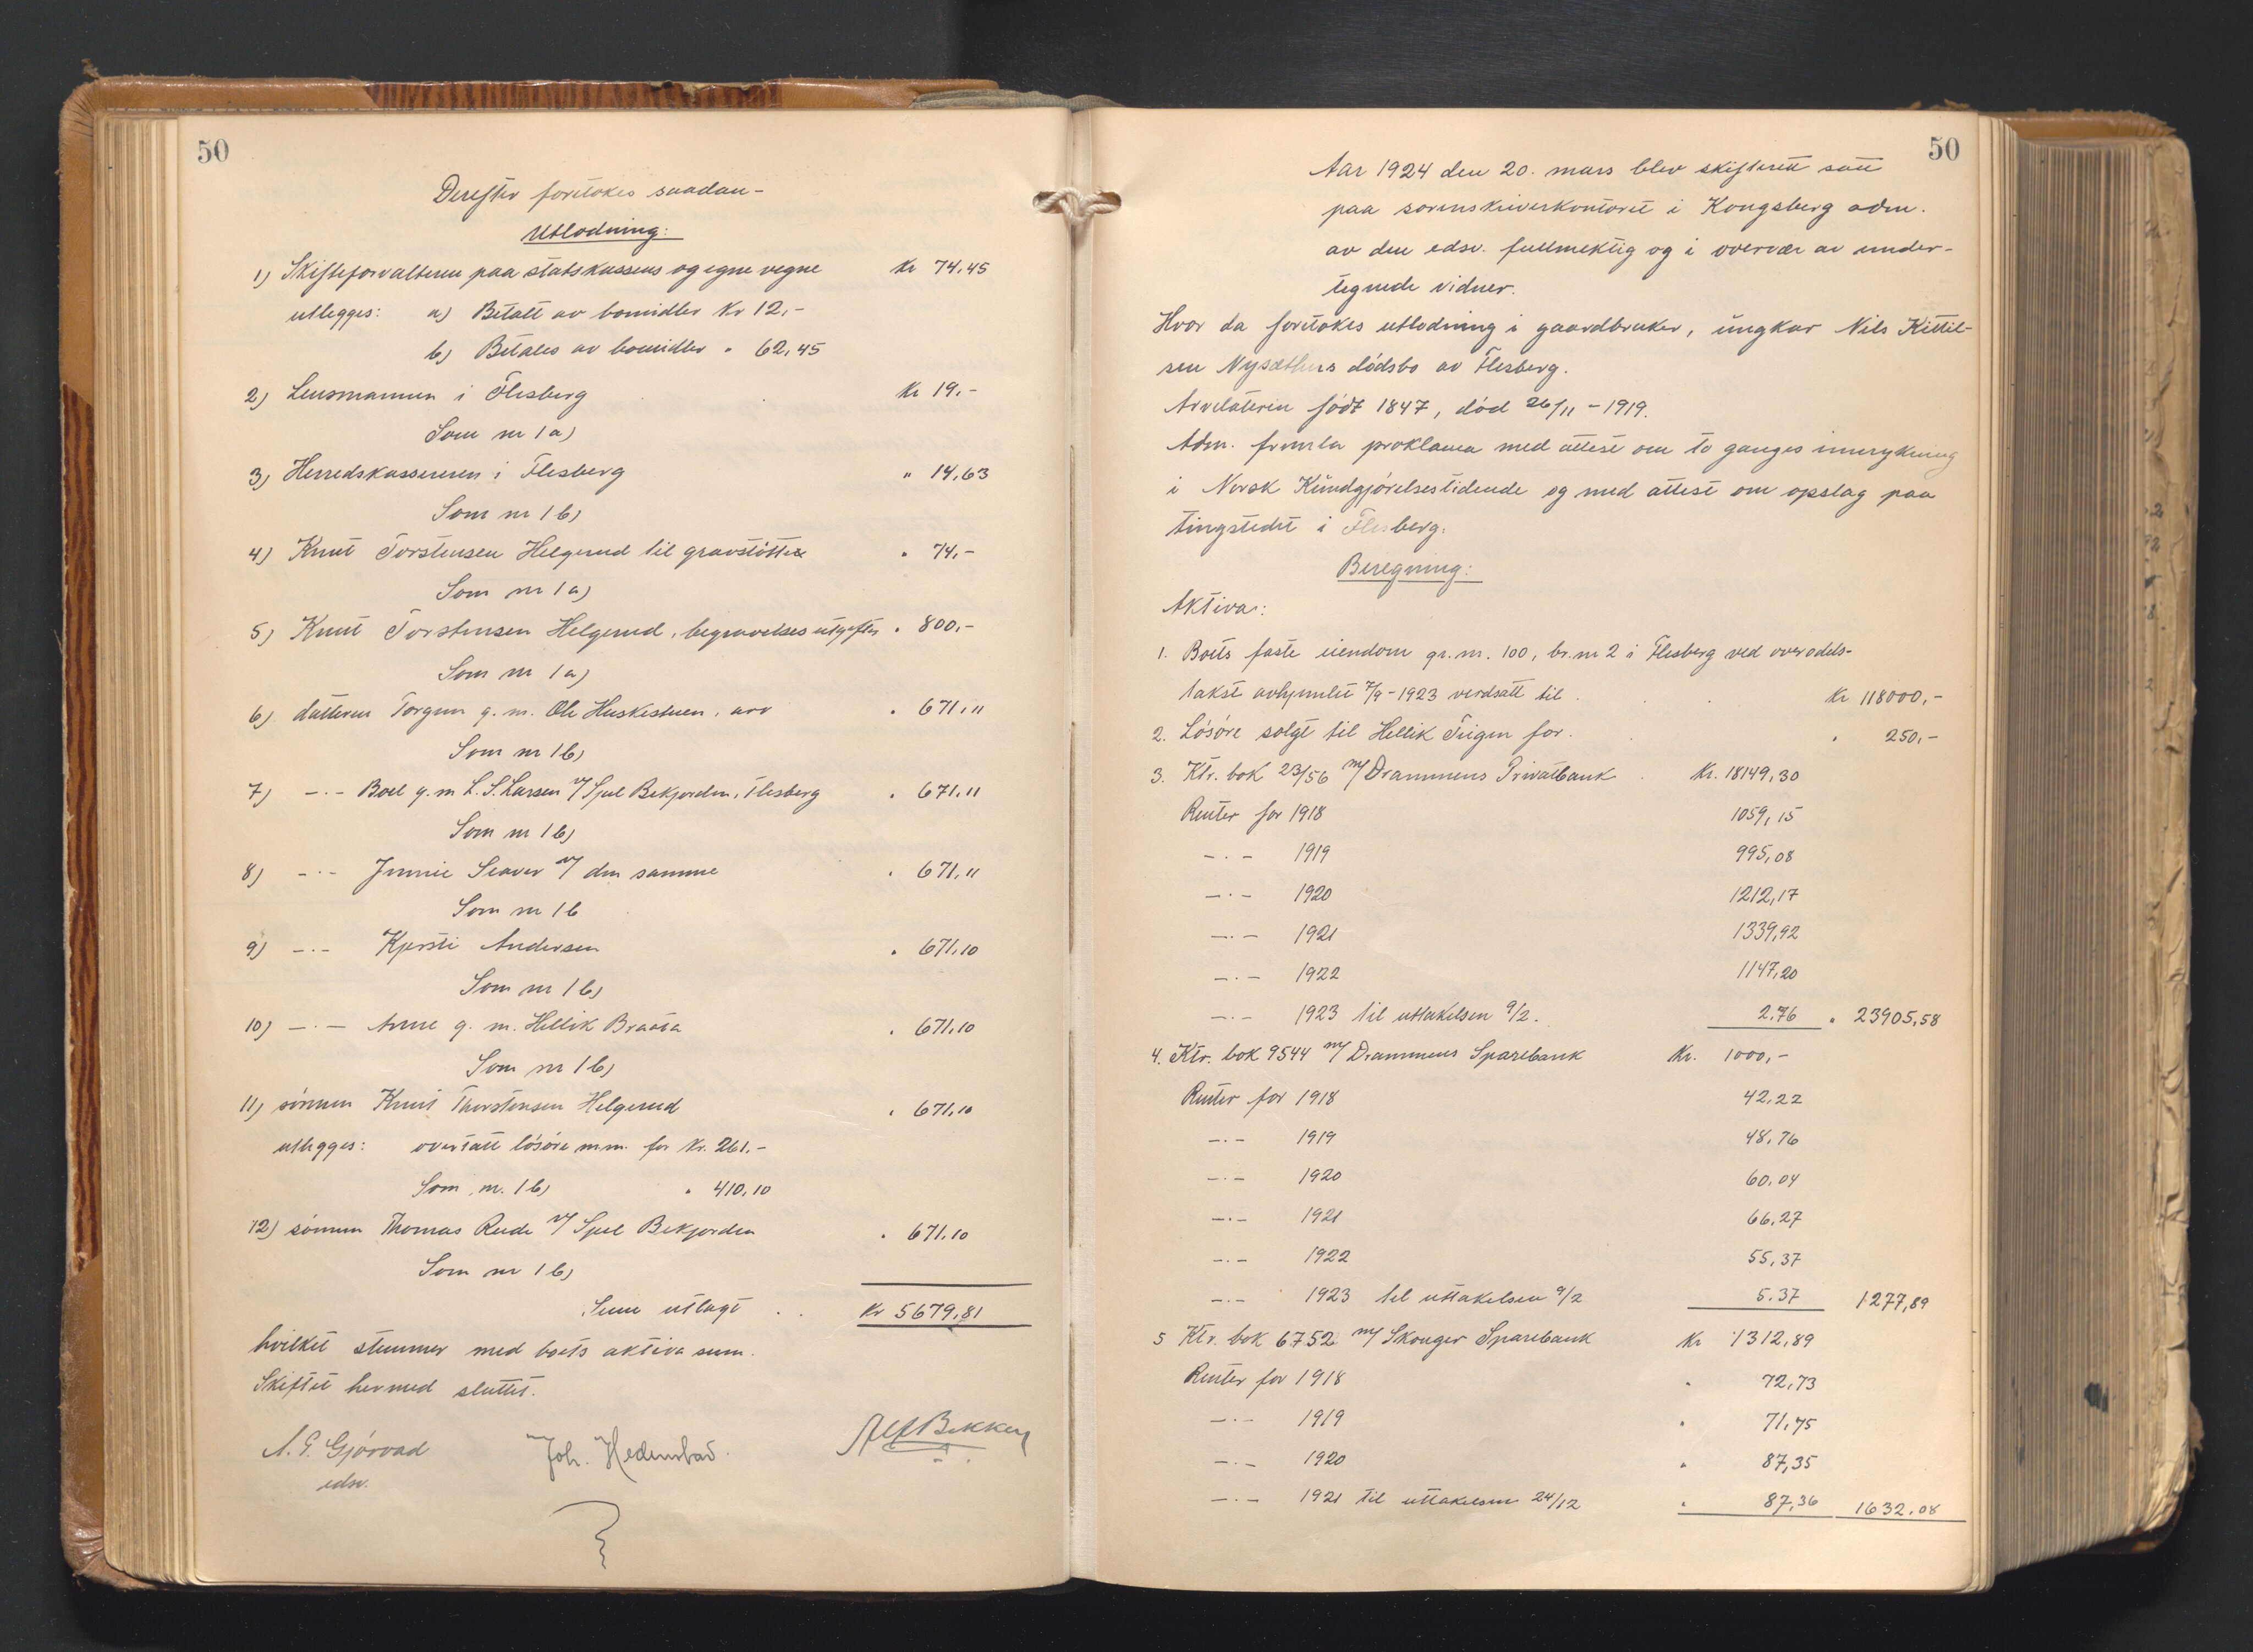 50
Derefter foretokes saadan-
Utlodning:
1) Skifteforvalteren paa statskassens og egne vegne Kr 74,45
utlegges: a) Betalt av bomidler Kr 12,-
b) Betales av bomidler " 62,45
2) Lensmannen i Flesberg Kr 19,-
Som nr 1 a)
3) Herredskassereren i Flesberg " 14,63
Som nr 1 b)
4) Knut Torstensen Helgerud til gravstötte " 74,-
Som nr 1 a)
5) Knut Torstensen Helgerud, begravelsesutgifter " 800,-
Som nr 1 a)
6) datteren Torgun g. m. Ole Huskestuen, arv " 671,11
Som nr 1 b)
7) -·- Boel g. m L. S. Larsen v/ Sjul Bekjorden, Flesberg " 671,11
Som nr 1 b)
8) -·- Jennie Seaver v/ den samme " 671,11
Som nr 1 b
9) -·- Kjersti Andersen " 671,10
Som nr 1 b)
10) -·- Anne g. m. Hellik Braata " 671,10
Som nr 1 b)
11) sönnen Knut Thorstensen Helgerud " 671,10
utlegges: overtatt lösöre m.m. for Kr. 261,-
Som nr. 1 b) " 410,10
12) sönnen Thomas Rude v/ Sjul Bekjorden " 671,10
Som nr 1 b)
Sum utlagt . . Kr 5679,81
hvilket stemmer med boets aktiva sum.
Skiftet hermed sluttet.
A. G. Gjörvad Joh. Hedenstad. Alf Bekken
edsv.
50
Aar 1924 den 20. mars blev skifterett satt
paa sorenskriverkontoret i Kongsberg adm.
av den edsv. fullmektig og i overvær av under-
tegnede vidner.
Hvor da foretokes utlodning i gaardbruker, ungkar Nils Kittil-
sen Nysæthers dödsbo av Flesberg.
Arvelateren födt 1847, död 26/11 - 1919.
Adm. fremla proklama med attest om to ganges innrykning
i Norsk Kundgjörelsestidende og med attest om opslag paa
tingstedet i Flesberg.
Beregning:
Aktiva:
1. Boets faste eiendom gr. nr. 100, br. nr 2 i Flesberg ved overodels-
takst avhjemlet 7/9 - 1923 verdsatt til . . Kr 118000,-
2. Lösöre solgt til Hellik Teigen for . . " 250,-
3. Ktr. bok 23/56 m/ Drammens Privatbank . Kr. 18149,30
Renter for 1918 1059,15
-·- 1919 995,08
-·- 1920 1212,17
-·- 1921 1339,92
-·- 1922 1147,20
-·- 1923 til uttakelsen 9/2. 2,76 " 23905,58
4. Ktr. bok 9544 m/ Drammens Sparebank Kr. 1000,-
Renter for 1918 42,22
-·- 1919 48,76
-·- 1920 60,04
-·- 1921 66,27
-·- 1922 55,37
-·- 1923 til uttakelsen 9/2 5.37 1277,89
5 Ktr. bok 6752 m/ Skouger Sparebank Kr 1312,89
Renter for 1918 " 72,73
-·- 1919 " 71,75
-·- 1920 " 87,35
-·- 1921 til uttakelsen 24/12 " 87,36 1632,08